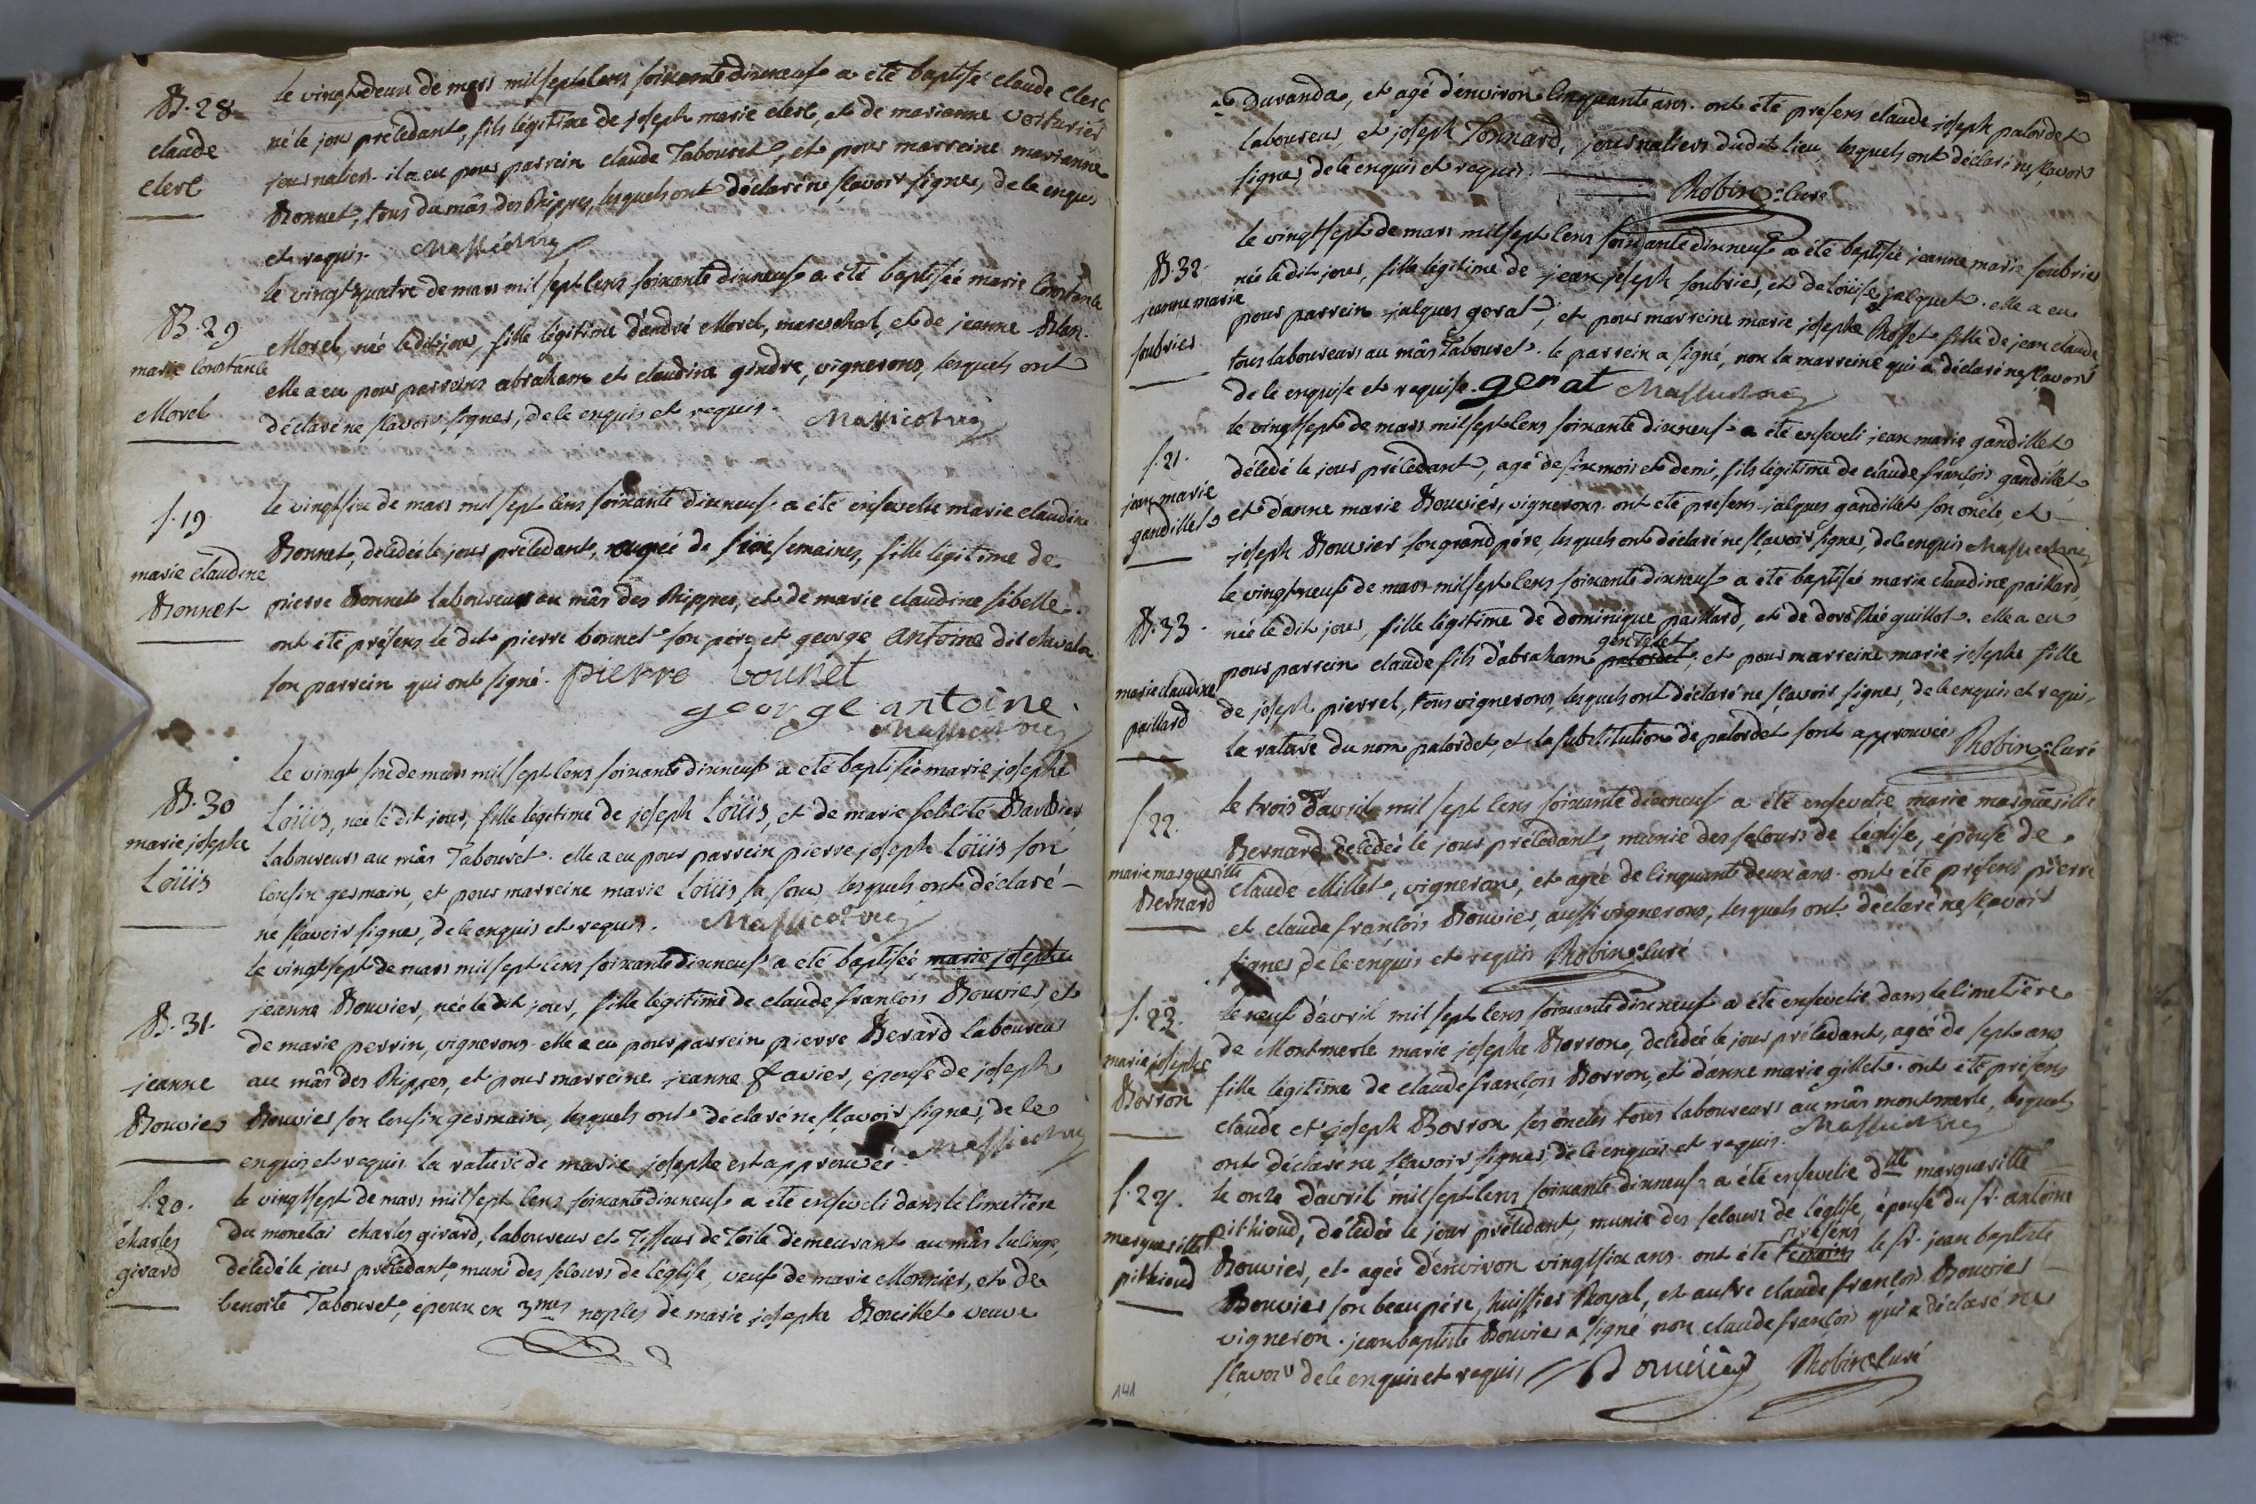 B. 28
claude
clerc
le vingt deux de mars mil sept cens soixante dixneuf a été baptisé claude clerc
né le jour précedant, fils légitime de joseph marie clerc, et de marianne voiturier
journaliers. il a eu pour parrein claude Tabouret, et pour marreine marianne
Bonnet, tous du mâs des Rippes, lesquels ont déclaré ne sçavoir signer, de ce enquis
et requis.
B. 29
marie Constance
Morel
le vingt quatre de mars mil sept cens soixante dixneuf a été baptisée marie Constance
Morel, née le dit jour, fille légitime d'andré Morel, mareschal, et de jeanne Blan.
elle a eu pour parreins abraham et claudine gindre, vignerons, lesquels ont
déclaré ne sçavoir signer, de ce enquis et requis.
s. 19
marie claudine
Bonnet
le vingt six de mars mil sept cens soixante dixneuf a été ensevelie marie claudine
Bonnet, décedée le jour précedant, agée de six semaines, fille légitime de
pierre Bonnet laboureur au mâs des Rippes, et de marie claudine sibelle.
ont été présens le dit pierre bonnet son père et george antoine dit chavalon
son parrein qui ont signé. pierre bounet
george antoine
B. 30
marie josephe
Loüis
le vingt six de mars mil sept cens soixante dixneuf a été baptisée marie josephe
Loüis, née le dit jour, fille légitime de joseph Loüis, et de marie felicité Barbier,
laboureurs au mâs Tabouret. elle a eu pour parrein pierre joseph Loüis son
cousin germain, et pour marreine marie Loüis sa sœur, lesquels ont déclaré
ne sçavoir signer, de ce enquis et requis.
B. 31.
jeanne
Bouvier
le vingt sept de mars mil sept cens soixante dixneuf a été baptisée marie josephe
jeanne Bouvier, née le dit jour, fille légitime de claude françois Bouvier et
de marie perrin, vignerons. elle a eu pour parrein pierre Berard laboureur
au mâs des Rippes, et pour marreine jeanne favier, epouse de joseph
Bouvier son cousin germain, lesquels ont déclaré ne sçavoir signer, de ce
enquis et requis. la rature de marie josephe est approuvée.
s. 20.
charles
girard
le vingt sept de mars mil sept cens soixante dixneuf a été enseveli dans le cimetière
du monetai charles girard, laboureur et Tisseur de Toile demeurant au mâs
décedé le jour précedant, muni des secours de l'église, veuf de marie Monnier, et de
benoite Tabouret, époux en 3mes noples de marie josephe Bouillet veuve
de Duranda, et agé d'environ cinquante ans. ont été presens claude joseph palordet
laboureur, et joseph Tonnard, journaliers dudit lieu, lesquels ont déclaré ne sçavoir
signer, de ce enquis et requis.
Robin curé
B. 32.
jeanne marie
soubrier
le vingt sept de mars mil sept cens soixante dixneuf a été baptisée jeanne marie soubrier
née le dit jour, fille légitime de jean joseph soubrier, et de loüise jacquet. elle a eu
pour parrein jacques gerat, et pour marreine marie josephe Rosset fille de jean claude
tous laboureurs au mâs Tabouret. le parrein a signé, non la marreine qui a déclaré ne sçavoir
de ce enquise et requise. gerat
s. 21.
jean marie
gandillet
le vingt sept de mars mil sept cens soixante dixneuf a été enseveli jean marie gandillet
décedé le jour précedant, agé de six mois et demi, fils légitime de claude françois gandillet
et d'anne marie Bouvier, vignerons. ont été présens jacques gandillet son oncle, et
joseph Bouvier son grand père, lesquels ont déclaré ne sçavoir signer, de ce enquis
B. 33.
marie claudine
paillard
le vingt neuf de mars mil sept cens soixante dixneuf a été baptisée marie claudine paillard
née le dit jour, fille légitime de dominique paillard, et de dorothée guillot. elle a eu
pour parrein claude fils d'abraham palordet, et pour marreine marie josephe fille
de joseph pierrel, tous vignerons, lesquels ont déclaré ne sçavoir signer, de ce enquis et requis,
la rature du nom palordet et la substitution de palordet sont approuvées Robin curé
s. 22.
marie marguerite
Bernard
le trois d'avril mil sept cens soixante dixneuf a été ensevelie marie marguerite
Bernard décedée le jour précedant, munie des secours de l'église, épouse de
claude Millet, vigneron, et agée de cinquante deux ans. ont été présens pierre
et claude françois Bouvier, aussi vignerons, lesquels ont déclaré ne sçavoir
signer de ce enquis et requis Robin curé
s. 23.
marie josephe
Borron
le neuf d'avril mil sept cens soixante dixneuf a été ensevelie dans le cimetière
de Montmerle marie josephe Borron, décedée le jour précedant, agée de sept ans
fille légitime de claude françois Borron, et d'anne marie gillet. ont été présens
claude et joseph Borron ses oncles tous laboureurs au mâs montmerle, lesquels
ont déclaré ne sçavoir signer, de ce enquis et requis.
s. 24.
marguerite
pithioud
le onze d'avril mil sept cens soixante dixneuf a été ensevelie dlle marguerite
pithioud, décedée le jour précedant, munie des secours de l'église, épouse du sr. antoine
Bouvier, et agée d'environ vingt six ans. ont été témoins présens le sr. jean baptiste
Bouvier son beau père, huissier Royal, et autre claude françois Bouvier
vigneron. jean baptiste Bouvier a signé non claude françois qui a déclaré ne
sçavoir de ce enquis et requis Bouvier Robin curé
141